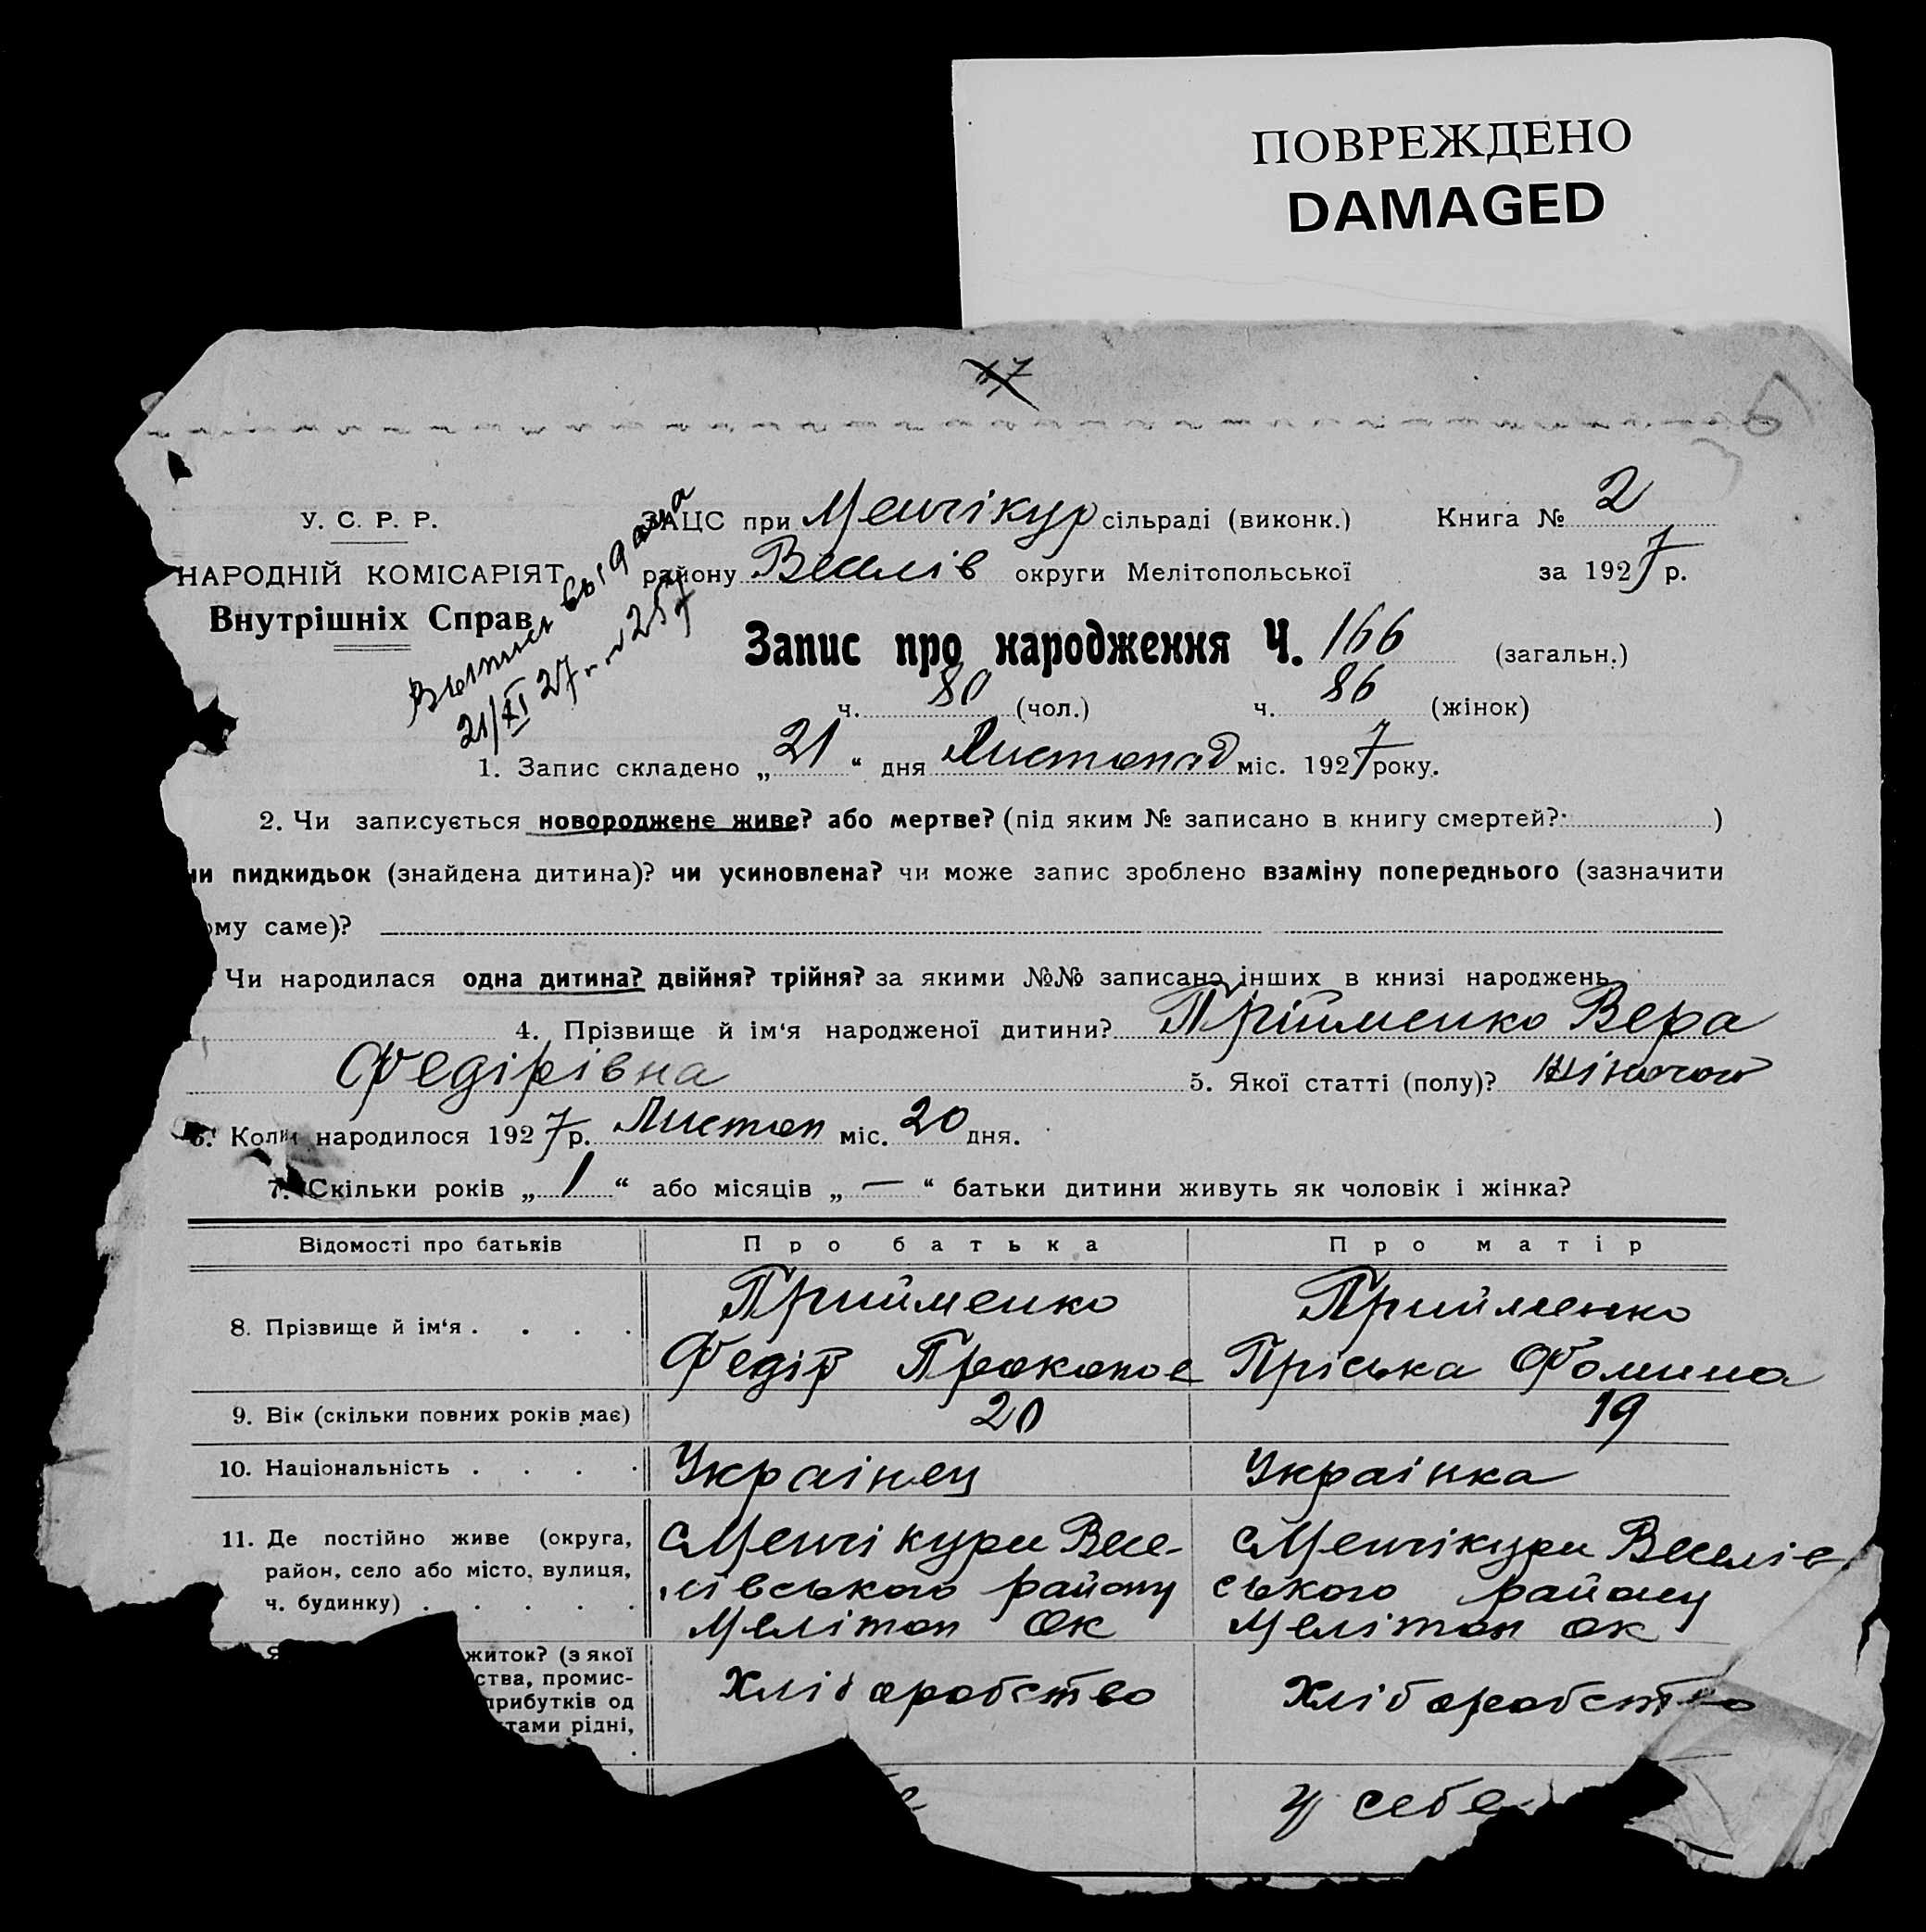 ПОВРЕЖДЕНО
DAMAGED
У. С. Р. Р.
НАРОДНІЙ КОМІСАРІЯТ
Внутрішніх Справ
ЗАЦС при Менчікур сільраді (виконк.) Книга № 2
району Веселів округи Мелітопольської за 1927 р.
Выпись выдана
21/XI 27 257
Запис про народження Ч. 166 (загальн.)
ч. 80 (чол.) ч. 86 (жінок)
1. Запис складено „21“ дня Листопад міс. 1927 року.
2. Чи записується новороджене живе? або мертве? (під яким № записано в книгу смертей? )
чи пидкидьок (знайдена дитина)? чи усиновлена? чи може запис зроблено взаміну попереднього (зазначити
ому саме)?
Чи народилася одна дитина? двійня? трійня? за якими №№ записано інших в книзі народжень
4. Прізвище й ім‘я народженої дитини? Прійменко Вера
Федірівна 5. Якої статті (полу)? жіночой
6. Коли народилося 1927 р. Листоп міс. 20 дня.
7. Скільки років „1“ або місяців „—“ батьки дитини живуть як чоловік і жінка?
Відомості про батьків Про батька Про матір
8. Прізвище й ім‘я . . . . Прийменко Федір Прокопов Прийменко Пріська Фомина
9. Вік (скільки повних років має) 20 19
10. Національність . . . . Украінец Украінка
11. Де постійно живе (округа, район, село або місто, вулиця, ч. будинку) . . . . .
с Менчікури Весе-
лівського району
Мелітоп Ок
с Менчікури Веселів
ського району
Мелітоп ок
житок? (з якої
ства, промис-
прибутків од
тами рідні,
Хліборобство Хліборобство
у себе